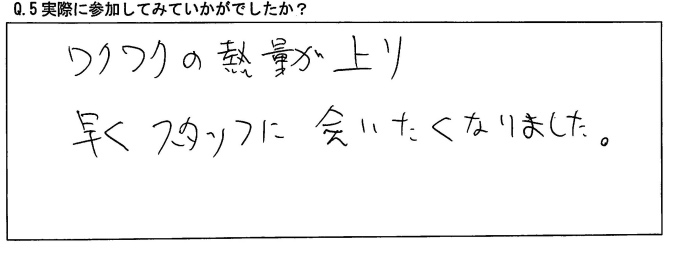 Q.5 実際に参加してみていかがでしたか？
ワクワクの熱量が上り
早くスタッフに会いたくなりました。